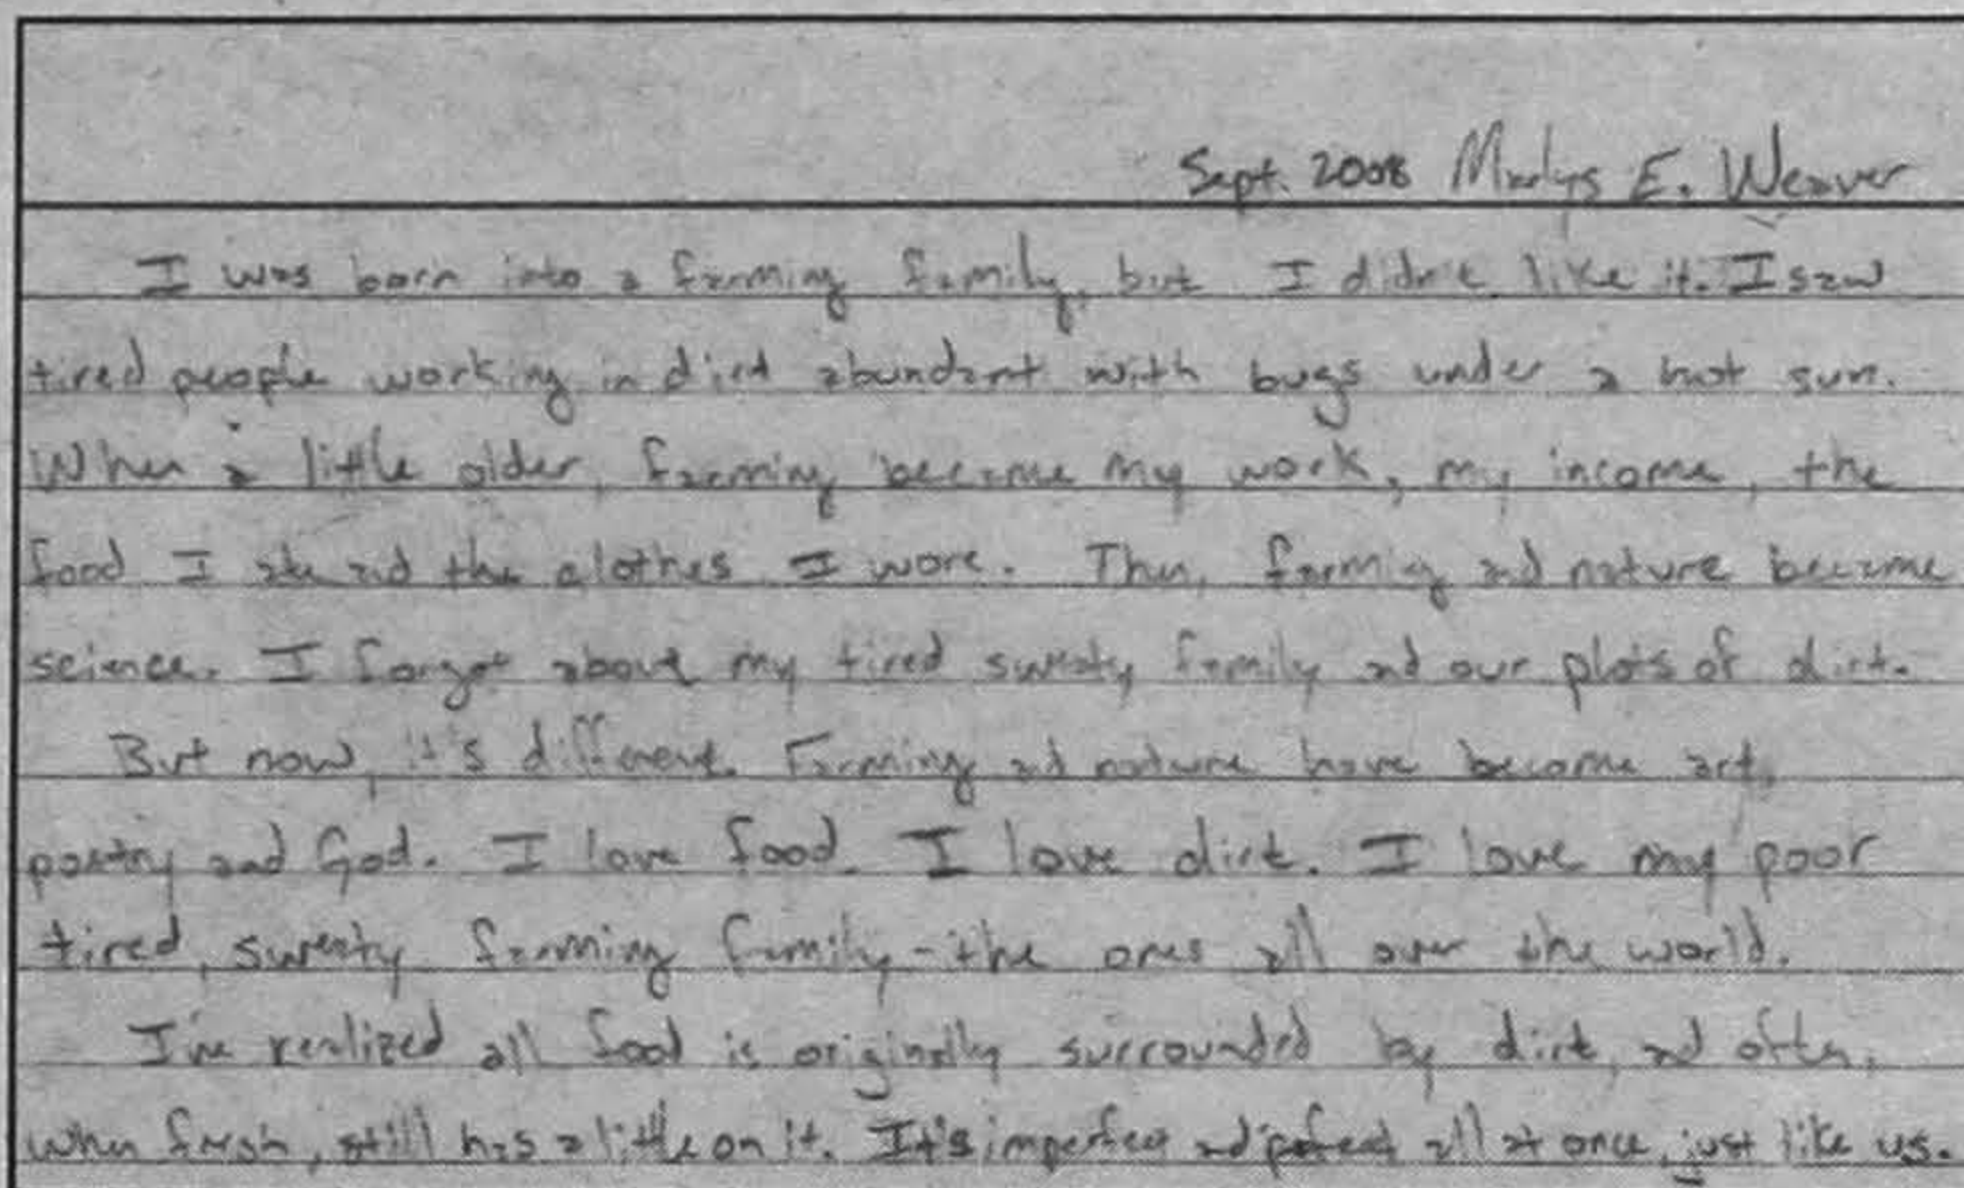 Sept. 2008 Marlys E. Weaver
I was born into a farming family, but I didn't like it. I saw
tired people working in dirt abundant with bugs under a hot sun.
When a little older, farming became my work, my income, the
food I ate and the clothes I wore. Then, farming and nature became
science. I forgot about my tired sweaty family and our plots of dirt.
But now, it's different. Farming and nature have become art,
poetry and God. I love food. I love dirt. I love my poor
tired, sweaty farming family - the ones all over the world.
I've realized all food is originally surrounded by dirt, and often,
when fresh, still has a little on it. It's imperfect and perfect all at once, just like us.